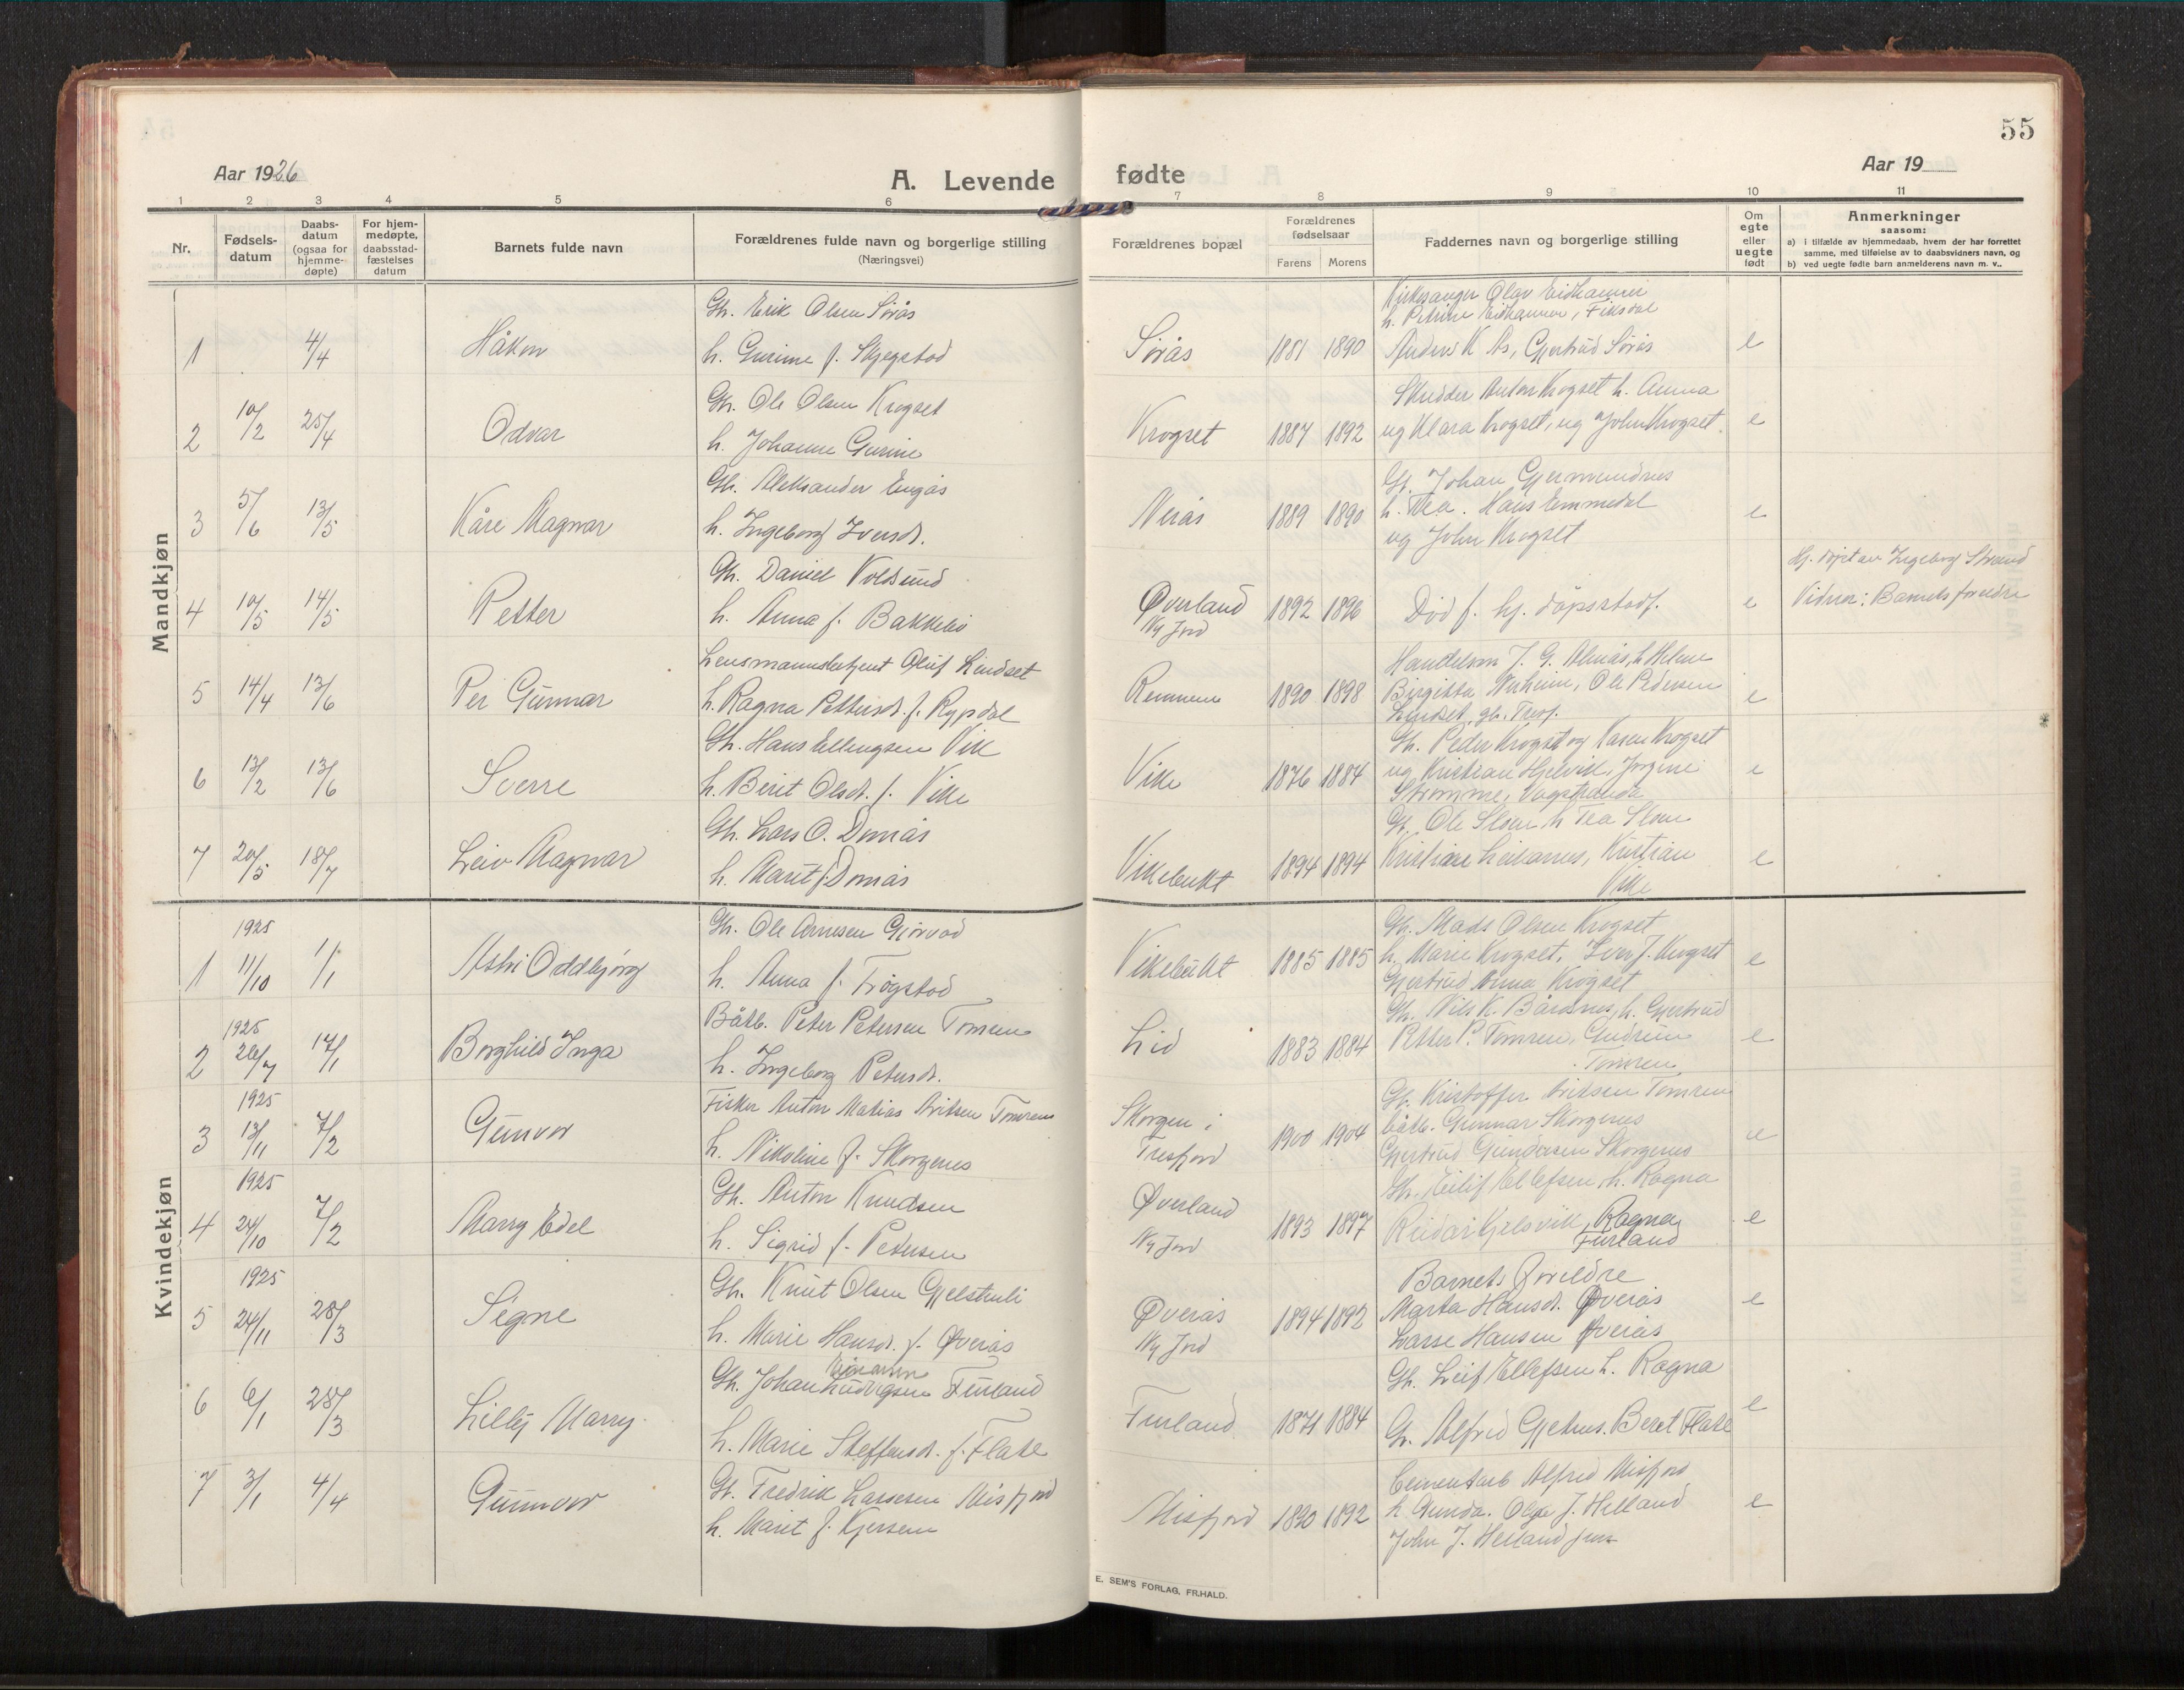 55
Aar 1926
A. Levende fødte
Aar 19
1 2 3 4 5 6 7 8 9 10 11
Nr.
Fødsels-
datum
Daabs-
datum
(ogsaa for
hjemme-
døpte)
For hjem-
medøpte,
daabsstad-
fæstelses
datum
Barnets fulde navn
Forældrenes fulde navn og borgerlige stilling
(Næringsvei)
Forældrenes bopæl
Forældrenes
fødselsaar
Farens Morens
Faddernes navn og borgerlige stilling
Om
egte
eller
uegte
født
Anmerkninger
saasom:
a) i tilfælde av hjemmedaab, hvem der har forrettet
samme, med tilføielse av to daabsvidners navn, og
b) ved uegte fødte barn anmelderens navn m. v..
Mandkjøn
Gh. Erik Olsen Sørås
Kirkesanger Olav Eidhammer
h. Petrine Eidhammer, Fiksdal
1 4/4 Håkon h. Gurine f. Skjegstad Sørås 1881 1890 Anders K. Ås, Gjertrud Sørås e
Gh. Ole Olsen Krogset
Skredder Anton Krogset h. Anna
2 10/2 25/4 Odvar h. Johanne Gurine Krogset 1887 1892 ug Klara Krogset, ug John Krogset e
Gh. Aleksander Engås
G. Johan Gjermundnes
3 5/6 13/5 Kåre Magnar h. Ingeborg Iversd. Nerås 1889 1890 h. Thea. Hans Emmedal e
ug John Krogset
Gh. Daniel Voldsund
Hj. døpt av Ingeborg Strand
4 10/5 14/5 Petter h. Anna f. Bakkebø Øverland 1892 1896 Død f. hj. dåpsstadf. e Vidner: Barnets foreldre
Ny Jord
Lensmannsbetjent Oluf Lindset
Handelsm J. G. Alnås, h Helene
5 14/4 13/6 Per Gunnar h. Ragna Pettersd. f. Rypdal Remmem 1890 1898 Birgitta Norheim, Ole Pedersen e
Lindset, gh. Tresf.
Gh. Hans Ellingsen Vik
Gh. Peder Krogset og Karen Krogset
6 13/2 13/6 Sverre h. Berit Olsd. f. Vike Vike 1876 1884 ug Kristian Hjelvik, Jorgine e
Strømme, Vagstranda
Gh. Lars O. Dømås
G. Ole Sloen h Tea Sloen
7 20/5 18/7 Leiv Magnar h. Marit f. Dømås Vikebukt 1894 1894 Kristiane Leirånes, Kristian e
Vike
Kvindekjøn
1925 Gh. Ole Arnesen Gjørvad
Gh. Mads Olsen Krogset
1 11/10 1/1 Astri Oddbjørg h. Anna f. Trøgstad Vikebukt 1885 1885 h. Marie Krogset, Iver J. Krogset e
Gjertrud Anna Krogset
1925 Båtb. Peter Petersen Tomren
Gh. Nils K. Bårdsnes, h. Gjertrud
2 26/7 17/1 Borghild Inga h. Ingeborg Petersd. Lid 1883 1884 Petter P. Tomren, Gudrun e
Tomren
1925 Fisker Anton Matias Eriksen Tomren
G. Kristoffer Eriksen Tomren
3 13/11 7/2 Gunvor h. Nikoline f. Skorgenes Skorgen i 1900 1904 båtb. Gunnar Skorgenes e
Tresfjord Gjertrud Gundersen Skorgenes
1925 Gh. Anton Knudsen
Gh. Eilif Ellefsen h. Ragna
4 24/10 7/2 Marry Edel h. Sigrid f. Pedersen Øverland 1893 1897 Reidar Kjelsvik, Ragna e
Ny Jord Furland
1925 Gh. Knut Olsen Gjelstenli
Barnets foreldre
5 24/11 28/3 Signe h. Marie Hansd. f. Øverås Øverås 1894 1892 Marta Hansd. Øverås e
Ny Jord Lasse Hansen Øverås
Gh. Johan Ludvigsen Furland
Gh. Leif Ellefsen h. Ragna
6 6/1 28/3 Lilly Marry h. Marie Steffensd. f. Flate Furland 1871 1884 G. Alfred Gjelnes. Beret Flate e
Gh. Fredrik Lassesen Misfjord
Cementarb Alfred Misfjord
7 3/1 4/4 Gunnvor h. Marit f. Kjersem Misfjord 1890 1892 h Gunda. Olga J. Helland e
John J. Helland jun
E. SEM'S FORLAG, FR.HALD.